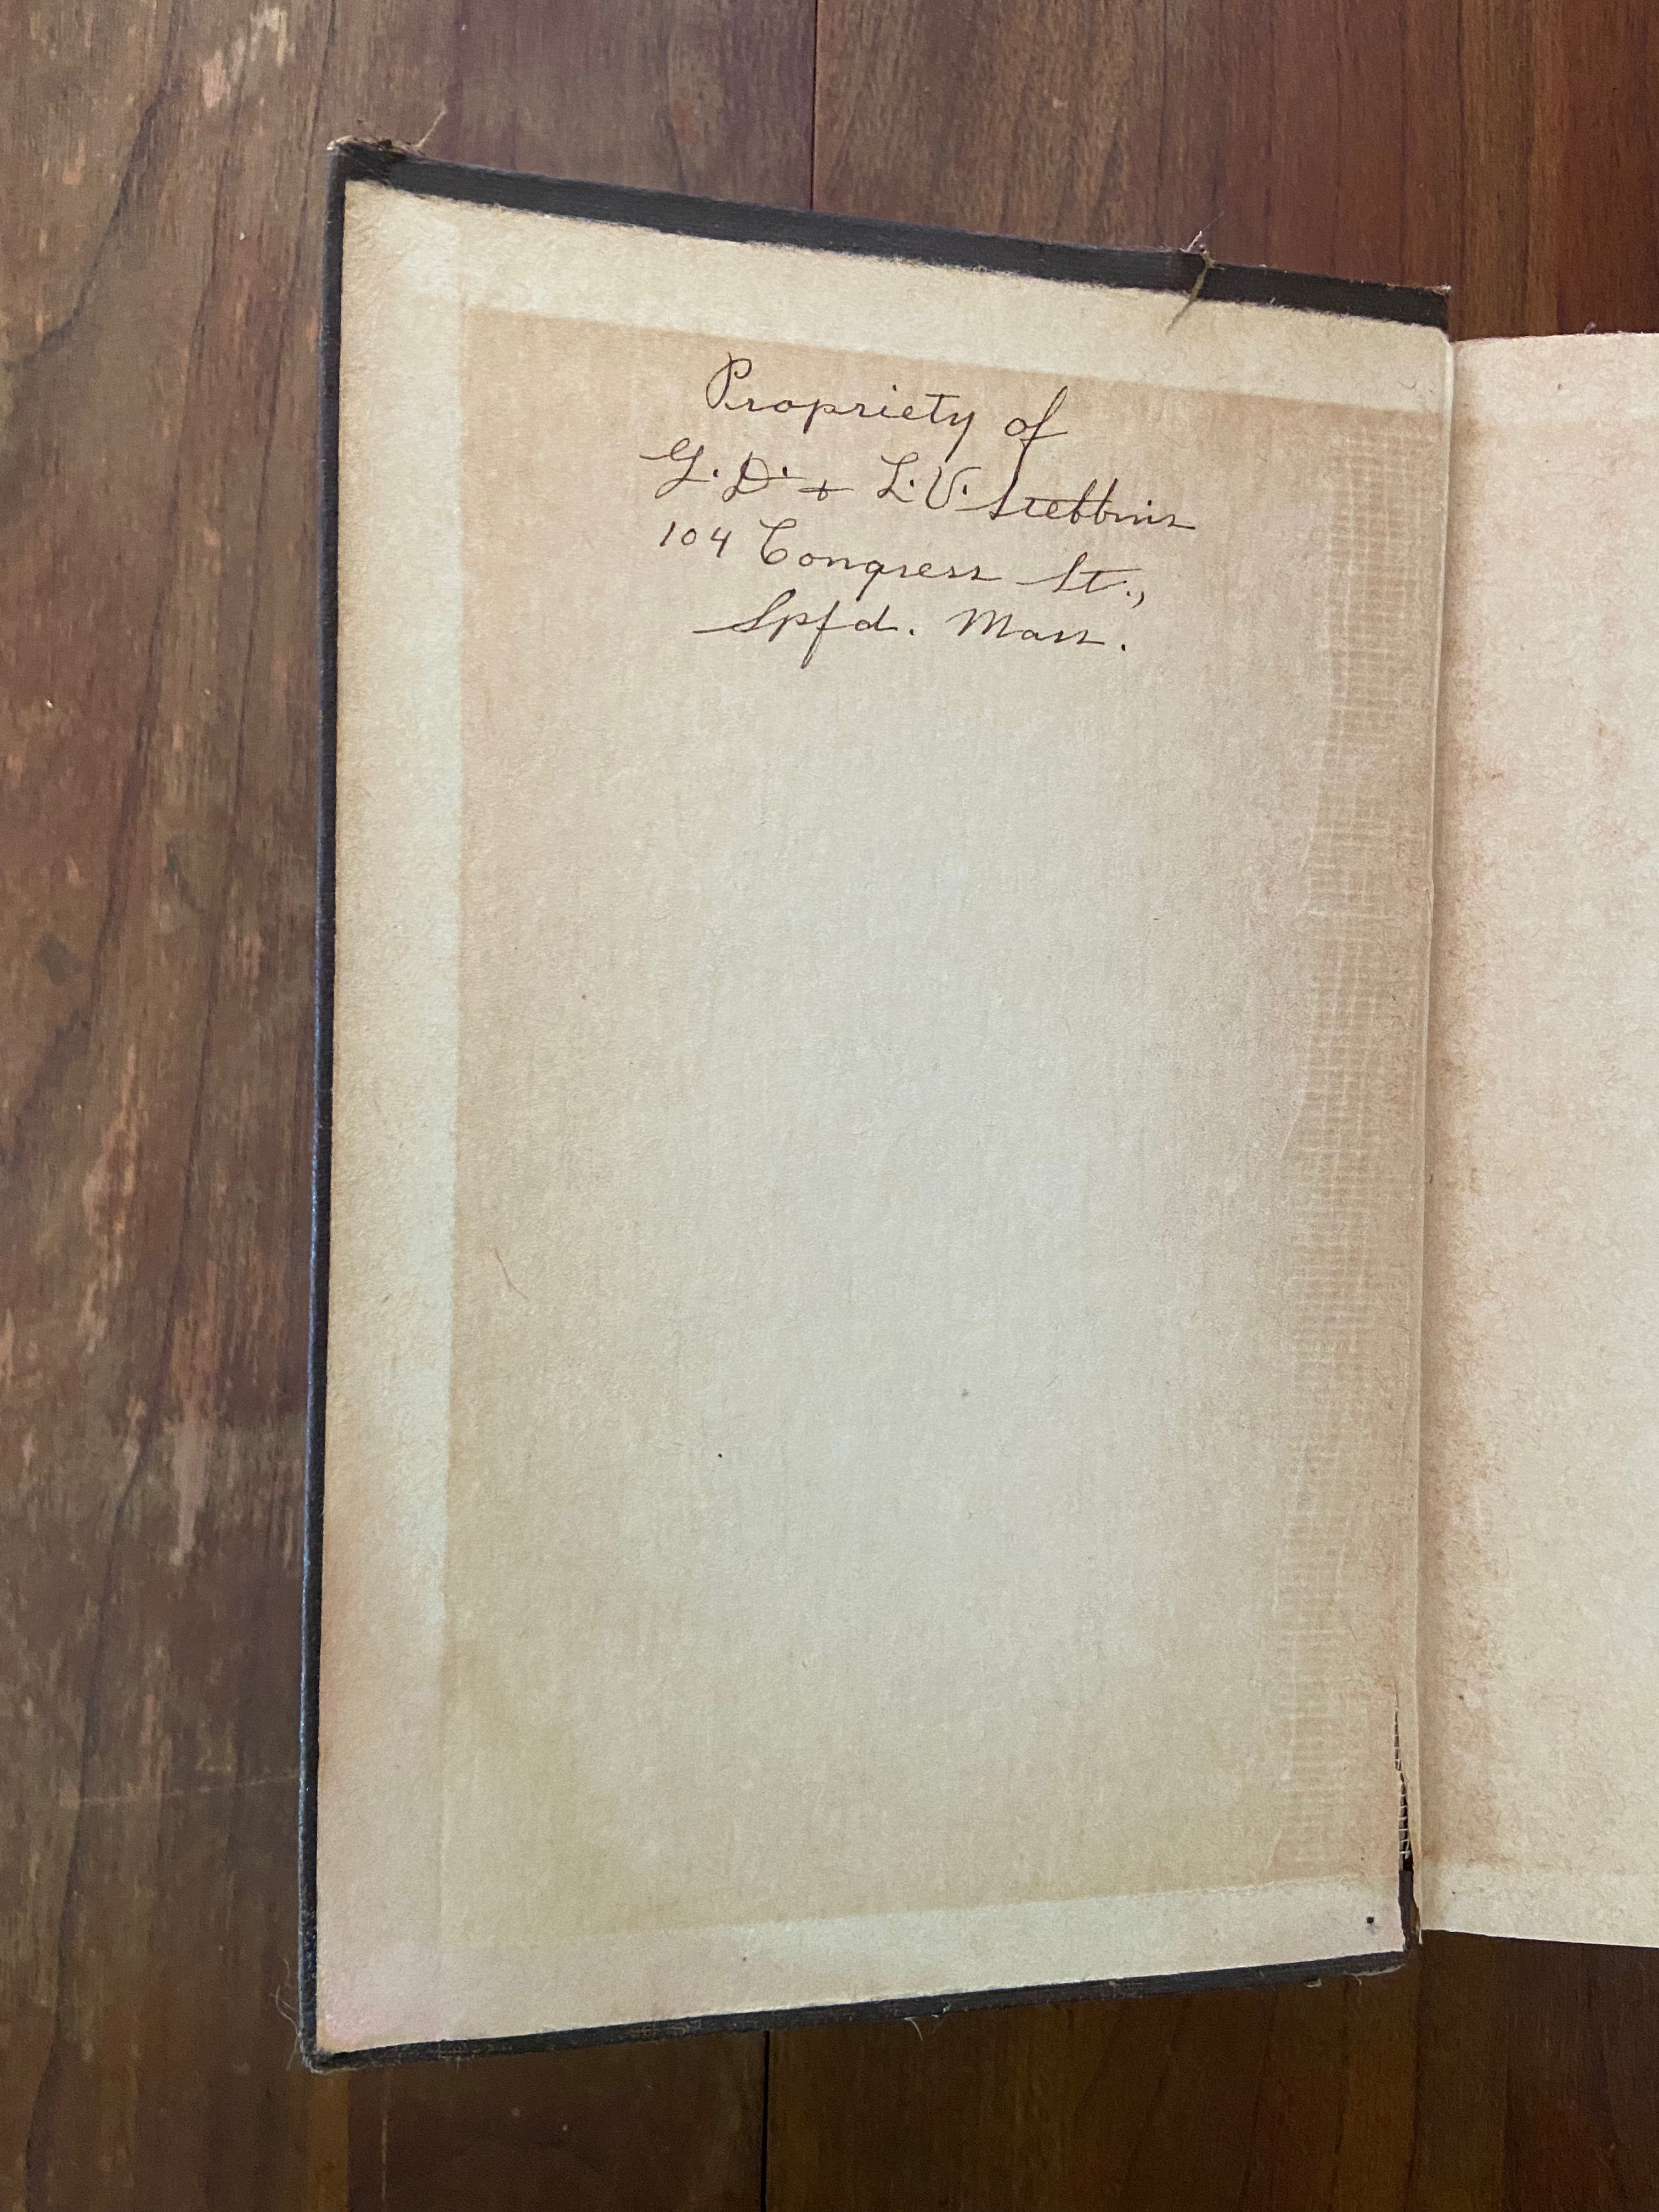 Propriety of
G. D. + L. V. Stebbins
104 Congress St.,
Spfd. Mass.